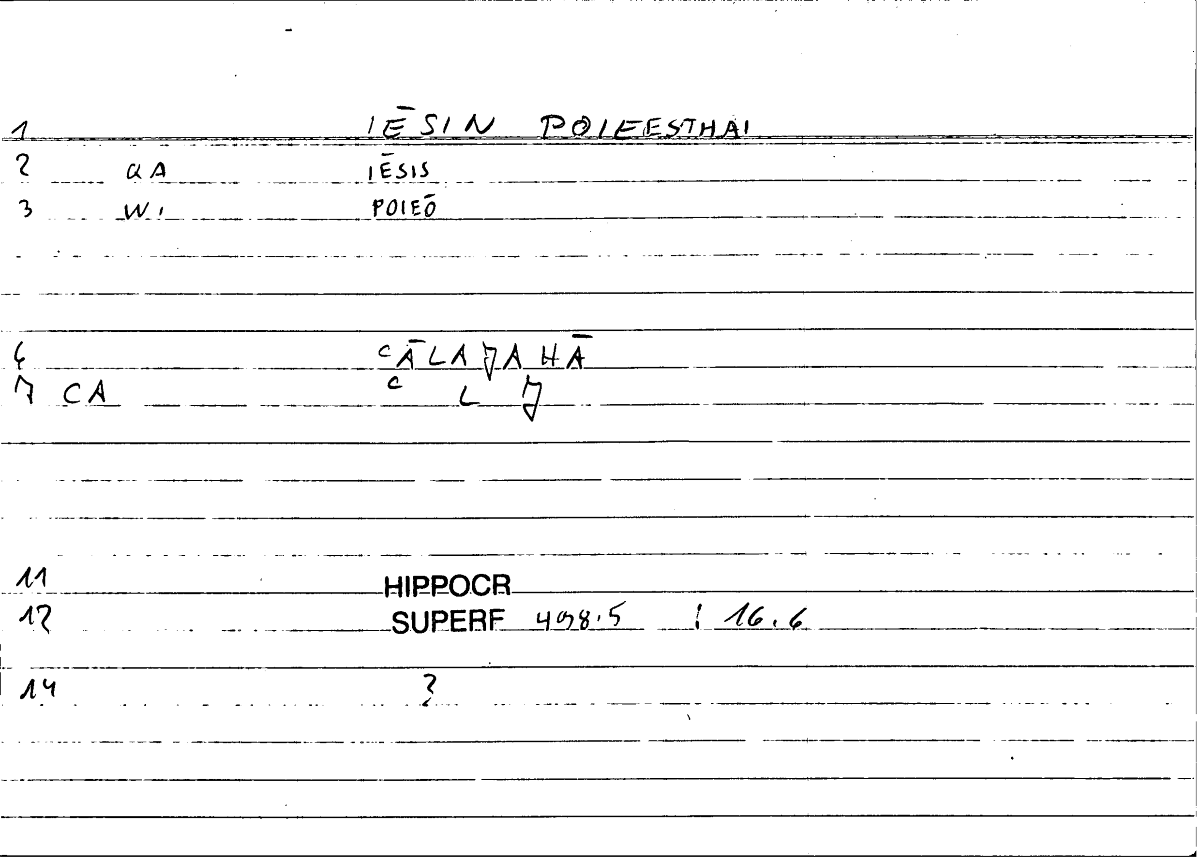 1 IĒSIN POIEESTHAI
2 QA IĒSIS
3 W, POIEŌ
6 ᶜĀLAJAHĀ
7 CA ᶜ L J
11 HIPPOCR
12 SUPERF 498.5 ; 16.6
14 ?